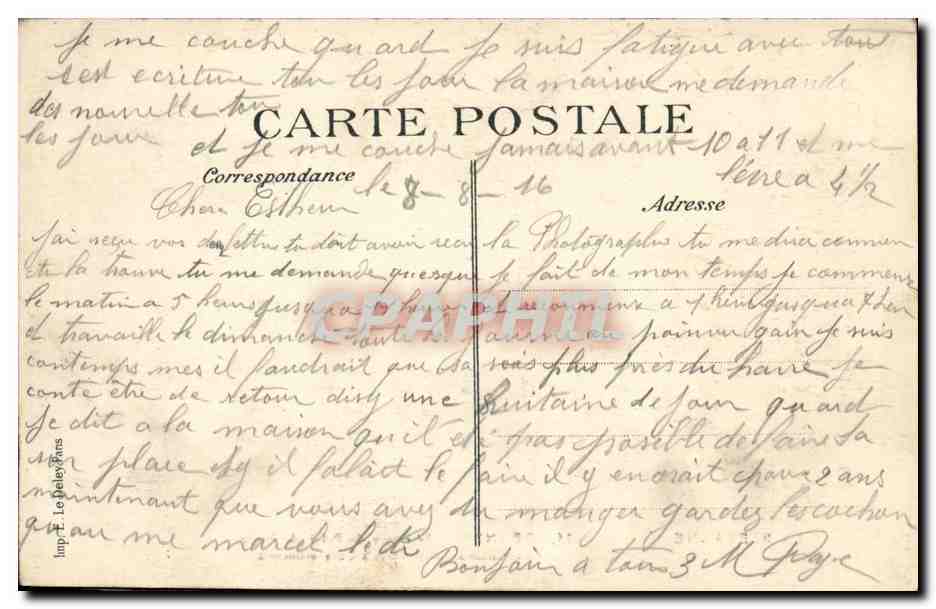 Je me couche quard Je suis fatigué avec tou
s est ecriture tou les Jour la maison me demande
des nouvelle tou
les Jour
CARTE POSTALE
et Je me couche Jamais avant 10 a 11 et me
lève a 4 1/2
Correspondance
le 8 - 8 - 16
Adresse
Chere Esther
J'ai reçu vos lettre tu doit avoir recu la Photographie tu me dira commen
te la trouve tu me demande quesque Je fait de mon temps Je commence
le matin a 5 heurs Jusqua et recommenx a 1 heur Jusqua 7 heu
et travaille le dimanche toute la Je suis
contemps mes il faudrait que Sa sois plus près du havre Je
conte être de retour disy une huitaine de Jour quard
Je dit a la maison qu'il été pas possible de faire Sa
sur place sy il falait le faire il y en orait pour 2 ans
maintenant que vous avez du manger gardez les cochon
qu au me marcel le di
Bonjour a tous 3 M
Imp. E. Le Deley, Paris
CPAPHIL